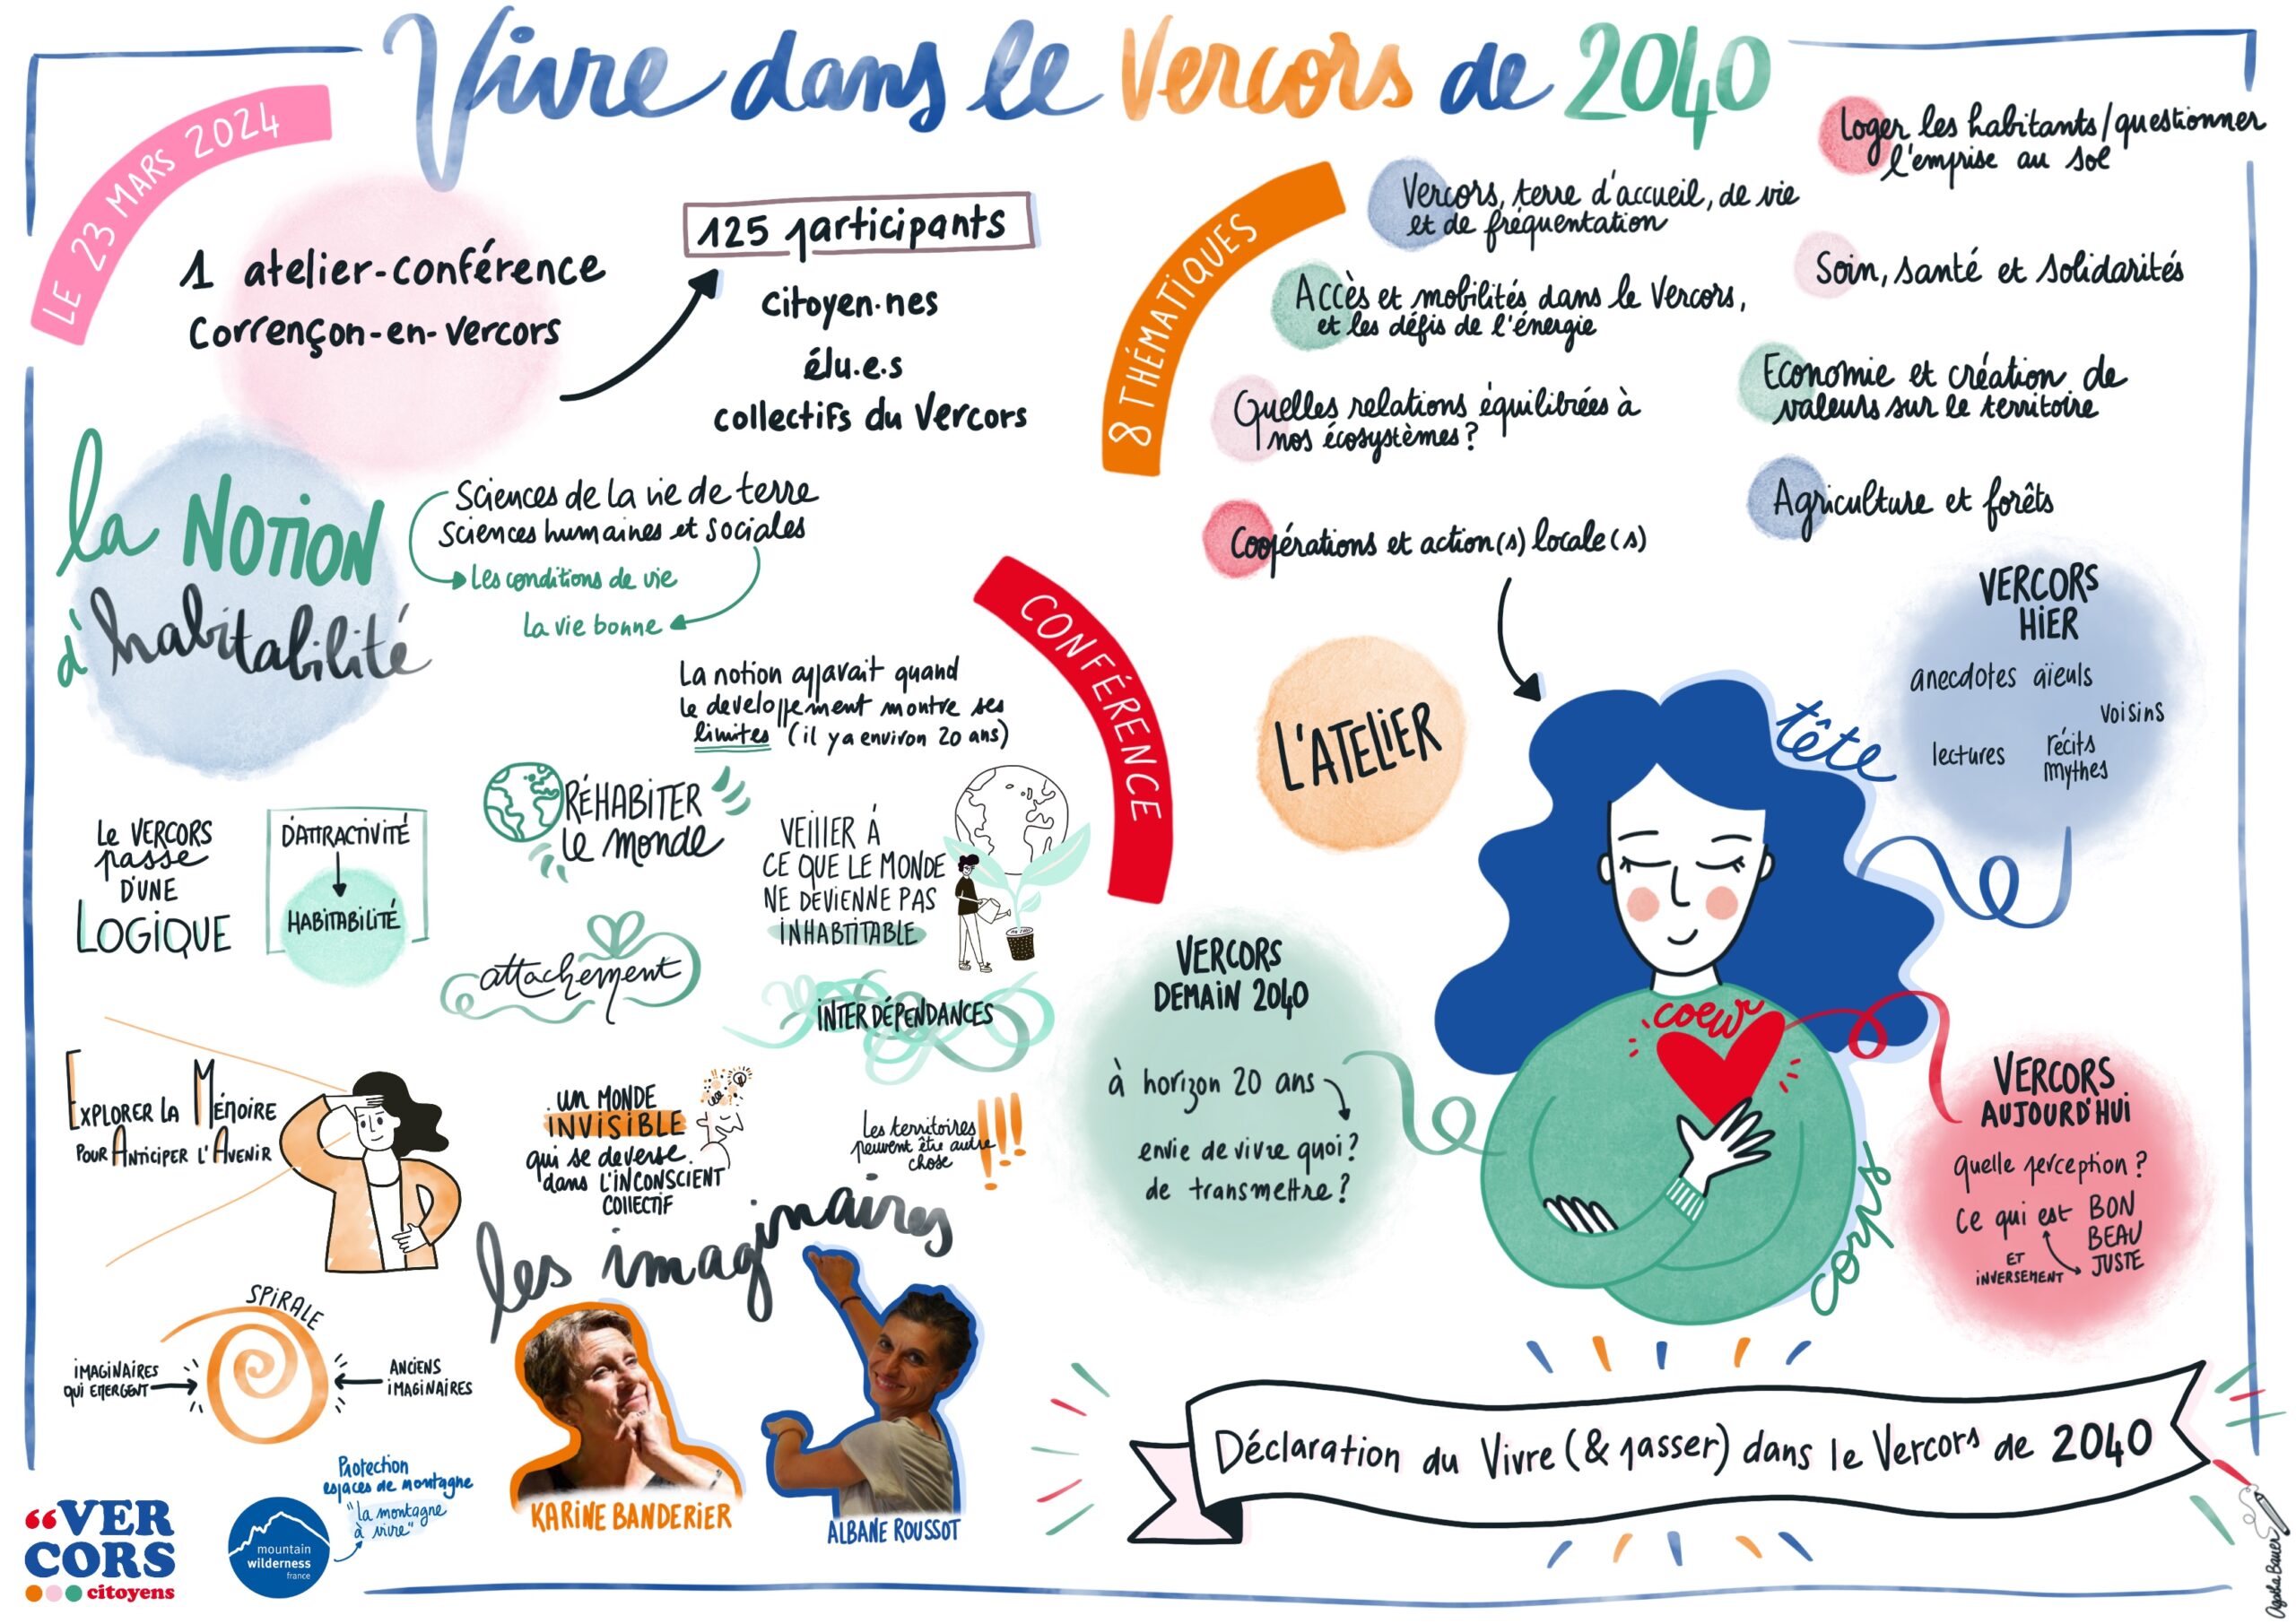 Vivre dans le Vercors de 2040
LE 23 MARS 2024
1 atelier-conférence
Corrençon-en-Vercors
125 participants
citoyen·nes
élu.e.s
collectifs du Vercors
8 THÉMATIQUES
Vercors, terre d'accueil, de vie
et de fréquentation
Accès et mobilités dans le Vercors,
et les défis de l'énergie
Quelles relations équilibrées à
nos écosystèmes ?
Coopérations et action(s) locale(s)
Loger les habitants/questionner
l'emprise au sol
Soin, santé et solidarités
Economie et création de
valeurs sur le territoire
Agriculture et forêts
la NOTION
d'habitabilité
Sciences de la vie de terre
Sciences humaines et sociales
Les conditions de vie
La vie bonne
CONFÉRENCE
La notion apparait quand
le developpement montre ses
limites (il y a environ 20 ans)
Le VERCORS
passe
D'UNE
LOGIQUE
D'ATTRACTIVITÉ
HABITABILITÉ
RÉHABITER
le monde
VEILLER À
CE QUE LE MONDE
NE DEVIENNE PAS
INHABTITABLE
attachement
INTERDÉPENDANCES
EXPLORER LA MÉMOIRE
POUR ANTICIPER L'AVENIR
UN MONDE
INVISIBLE
qui se deverse
dans L'INCONSCIENT
COLLECTIF
Les territoires
peuvent être autre
chose
!!!
les imaginaires
SPIRALE
IMAGINAIRES
QUI EMERGENT
ANCIENS
IMAGINAIRES
KARINE BANDERIER
ALBANE ROUSSOT
L'ATELIER
tête
coeur
corps
VERCORS
HIER
anecdotes aïeuls
voisins
lectures
récits
mythes
VERCORS
DEMAIN 2040
à horizon 20 ans
envie de vivre quoi ?
de transmettre ?
VERCORS
AUJOURD'HUI
quelle perception ?
ce qui est BON
BEAU
JUSTE
ET
INVERSEMENT
Déclaration du Vivre (& passer) dans le Vercors de 2040
“VER
CORS
citoyens
mountain
wilderness
france
Protection
espaces de montagne
"la montagne
à vivre"
Agatha Bauer